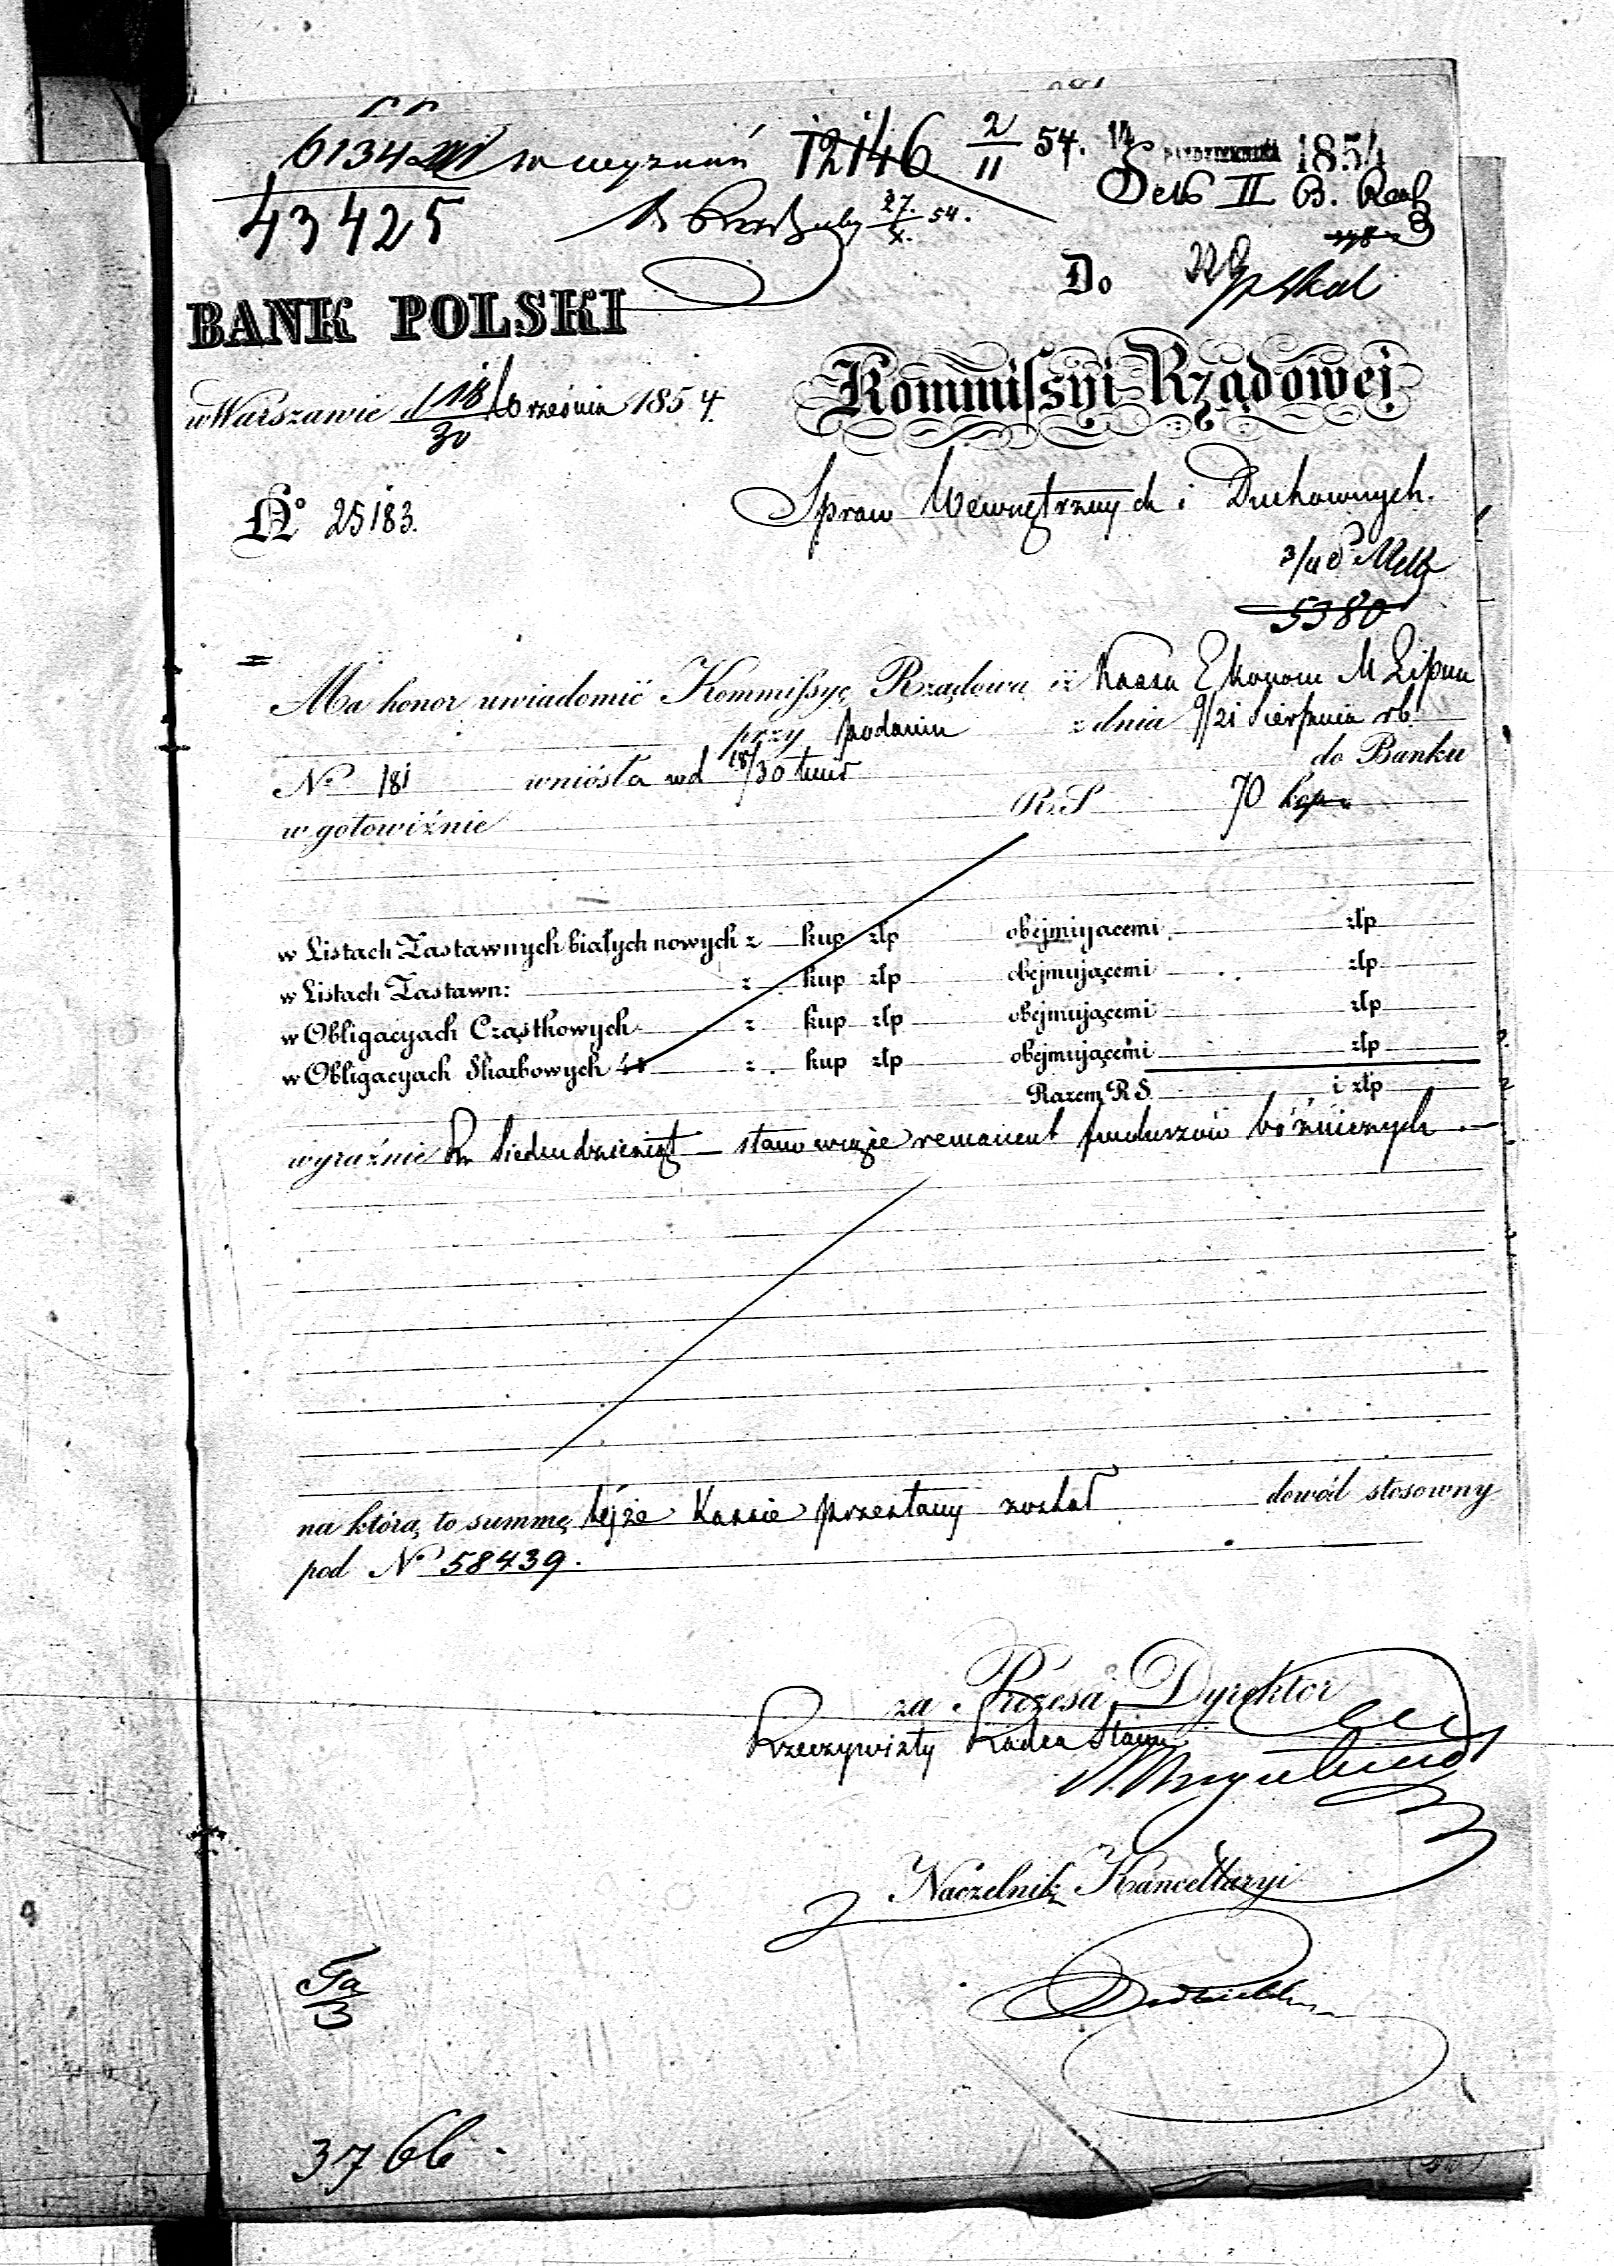 6134 w wyznań 12146 2/11 54. 1854
43425 27/X. 54. II B.
Do
BANK POLSKI
Kommissyi Rządowej
w Warszawie d 18/30 Września 1854
Spraw Wewnętrznych i Duchownych.
No 25183.
5380
Ma honor uwiadomić Kommissyę Rządową iż Kassa Ekonom M Lipna
przy podaniu z dnia 9/21 Sierpnia rb.
No 181 wniosła wd 18/30 do Banku
w gotowiźnie R.S 70 kop
w Listach Zastawnych białych nowych z kup złp obejmującemi złp
w Listach Zastawn: z kup złp obejmującemi złp
w Obligacyach Cząstkowych z kup złp obejmującemi złp
w Obligacyach Skarbowych z kup złp obejmującemi złp
Razem R S. i złp
wyraźnie Rs. Siedmdziesiąt — stanowiące remanent funduszów bóżnicznych. —
na którą to summę tejże Kassie przesłany został dowód stosowny
pod No 58439.
za Prezesa, Dyrektor
Rzeczywisty Radca Stanu
Naczelnik Kancellaryi
3766.